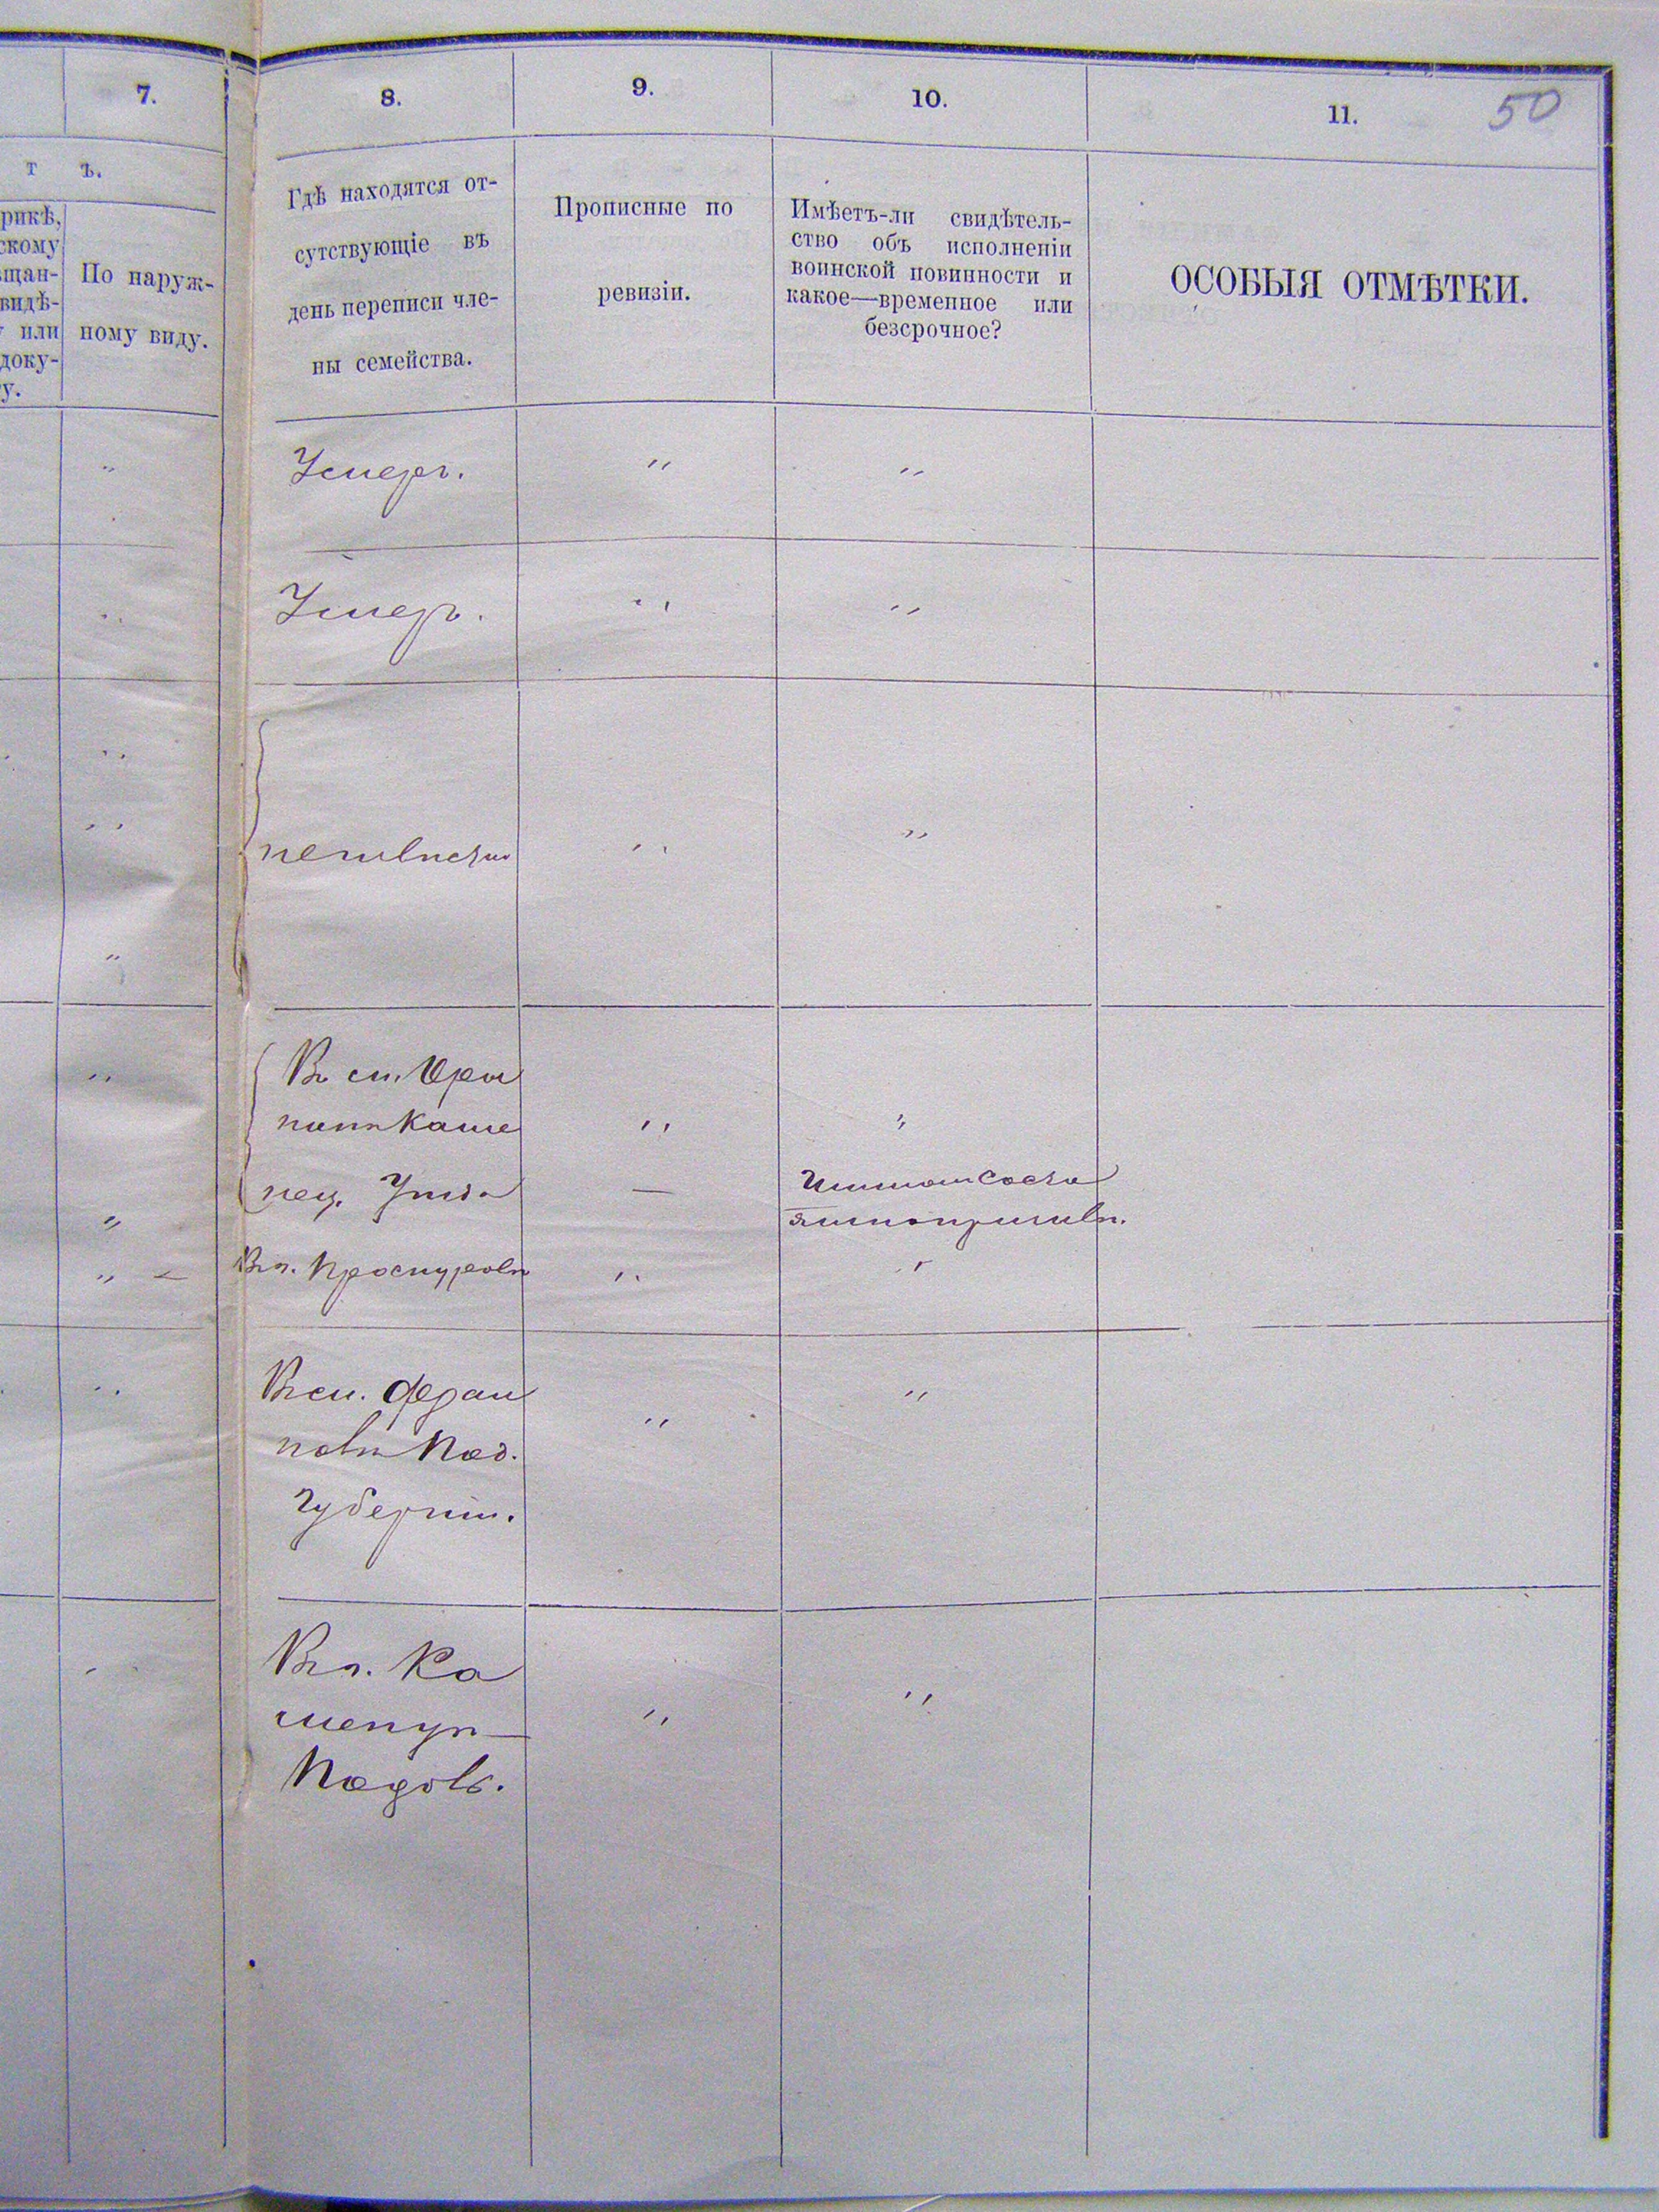 7.
8.
9.
10.
11.
50
т ъ.
рикѣ,
скому
щан-
видѣ-
или
доку-
у.
По наруж-
ному виду.
Гдѣ находятся от-
сутствующіе въ
день переписи чле-
ны семейства.
Прописные по
ревизіи.
Имѣетъ-ли свидѣтель-
ство объ исполненіи
воинской повинности и
какое—временное или
безсрочное?
ОСОБЫЯ ОТМѢТКИ.
Умеръ.
Умеръ.
неизвѣстно
Въ м. Ори
нинѣ Каме
нец. Уѣзда
Въ г. Проскуровѣ
Въ м. Фрам
полѣ Под.
Губерніи.
Въ г. Ка
менцѣ—
Подольс.